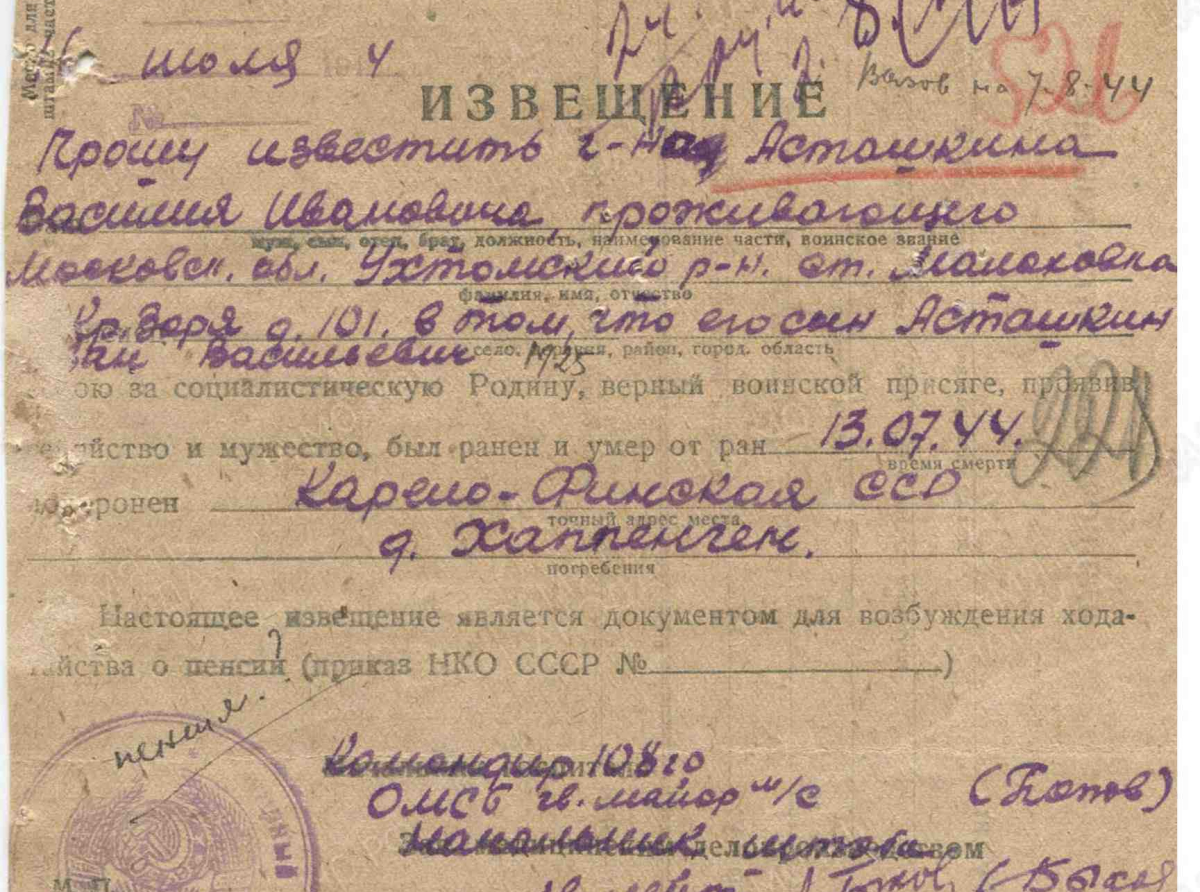 июля 4
№
ИЗВЕЩЕНИЕ
Вызов на 7-8-44
526
Прошу известить г-на Асташкина
Василия Ивановича, проживающего
муж, сын, отец, брат, должность, наименование части, воинское звание
Московск. обл. Ухтомский р-н. ст. Малаховка
фамилия, имя, отчество
Кр. Заря д. 101. в том, что его сын Асташкин
Васильевич 1925
село, деревня, район, город, область
ою за социалистическую Родину, верный воинской присяге, проявив
ойство и мужество, был ранен и умер от ран 13.07.44.
время смерти
похоронен Карело-Финская ССР
точный адрес места
д. Хаппенчен.
погребения
Настоящее извещение является документом для возбуждения хода-
тайства о пенсии (приказ НКО СССР № )
пенсия.
Командир 108го
ОМСБ гв. майор м/с (Попов)
Начальник штаба
делопроизводством
М. П.